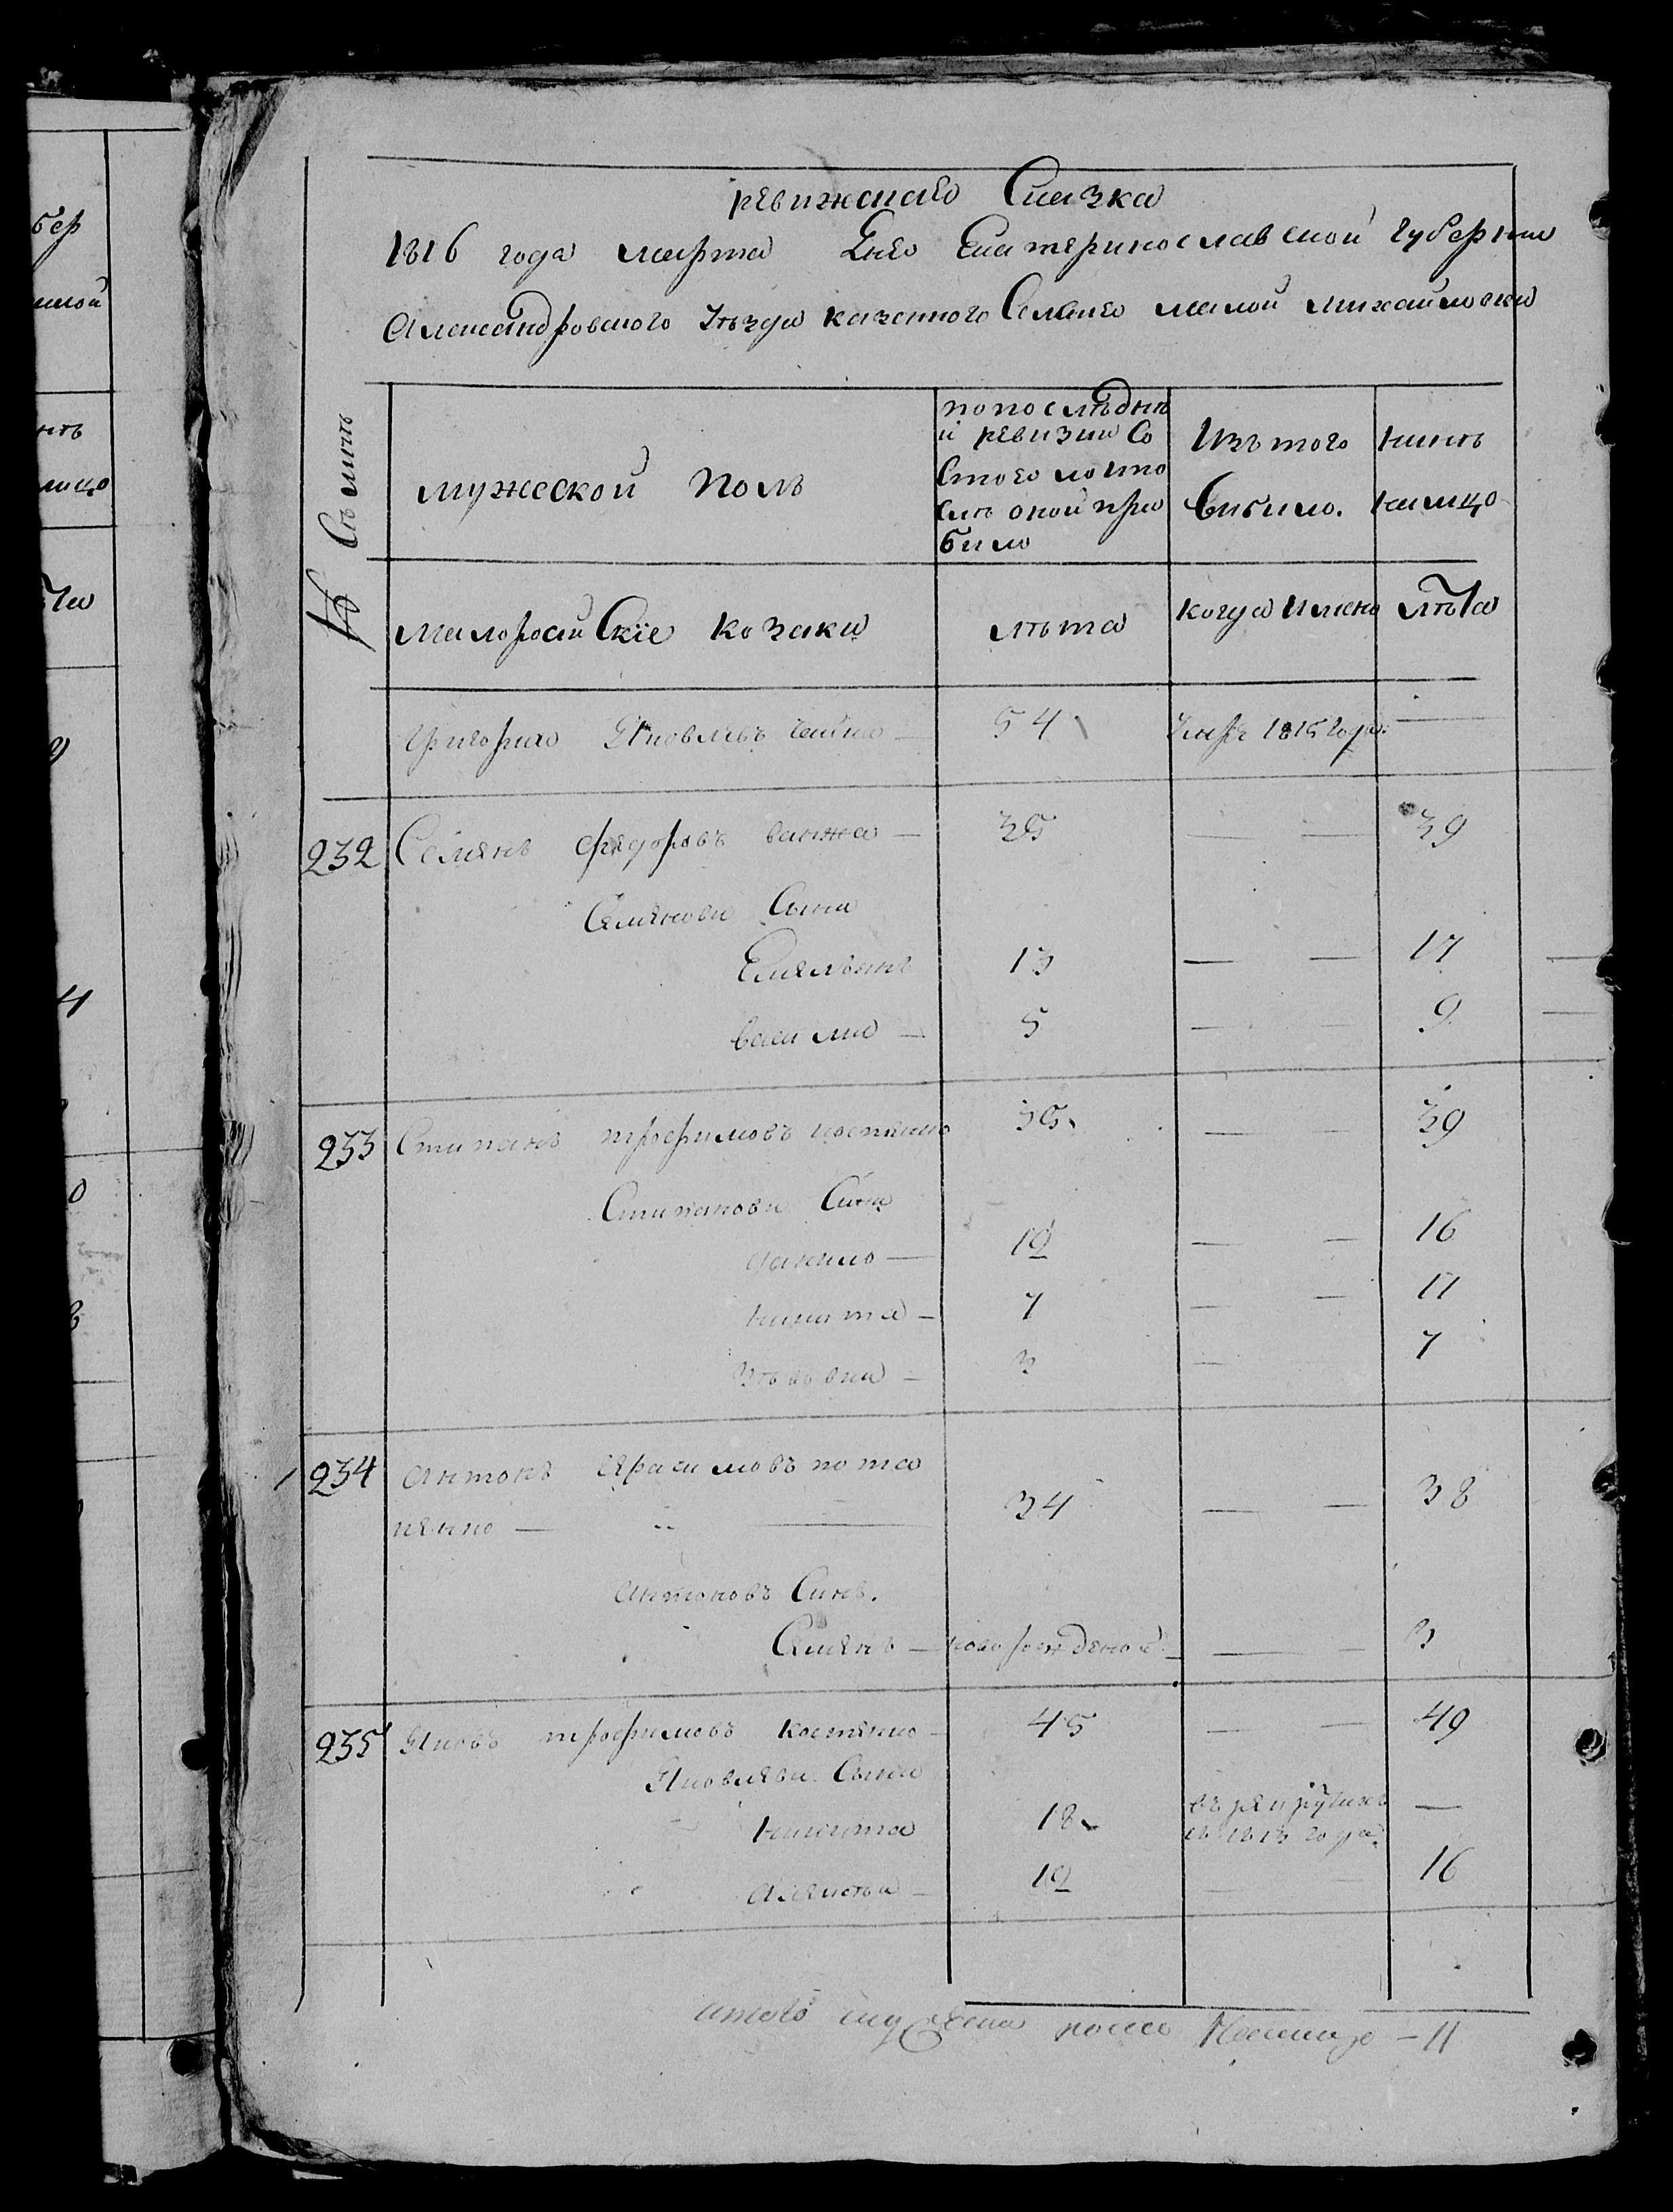 бер
ной
нѣ
лицо
Та
ревижская Сказка
1816 года марта Дня Екатеринославской губернии
Александровского Уѣзда казенного Селения малой михайловки
№ Семѣи
мужеской полъ
попослѣдне
и ревизии Со
стояло ипо
слѣ оной при
било
Изъ того
выбило.
нинѣ
налицо
малоросийские козаки
лѣта
когда имено
лѣта
григорий Яковлевъ 54 умре 1815 года —
232 Семенъ федоровъ ванжа — 35 — — 39
Семенови Сыни
Емельянъ 13 — — 17
василий — 5 — — 9
233 Степанъ трофимовъ костенко 35 — — 39
Степанови Сини
данило — 12 — — 16
никита — 7 — — 11
3 — 7
234 антонъ герасимовъ пота
пенко — 34 — — 38
антоновъ Синъ.
Семенъ — новорожденой — — 3
235 Яковъ трофимовъ костенко — 45 — — 49
Яковлеви Сыни
никита 18 въ рекрутахъ —
съ 1813 года
алексей — 12 — — 16
итого мужеска пола налицо — 11